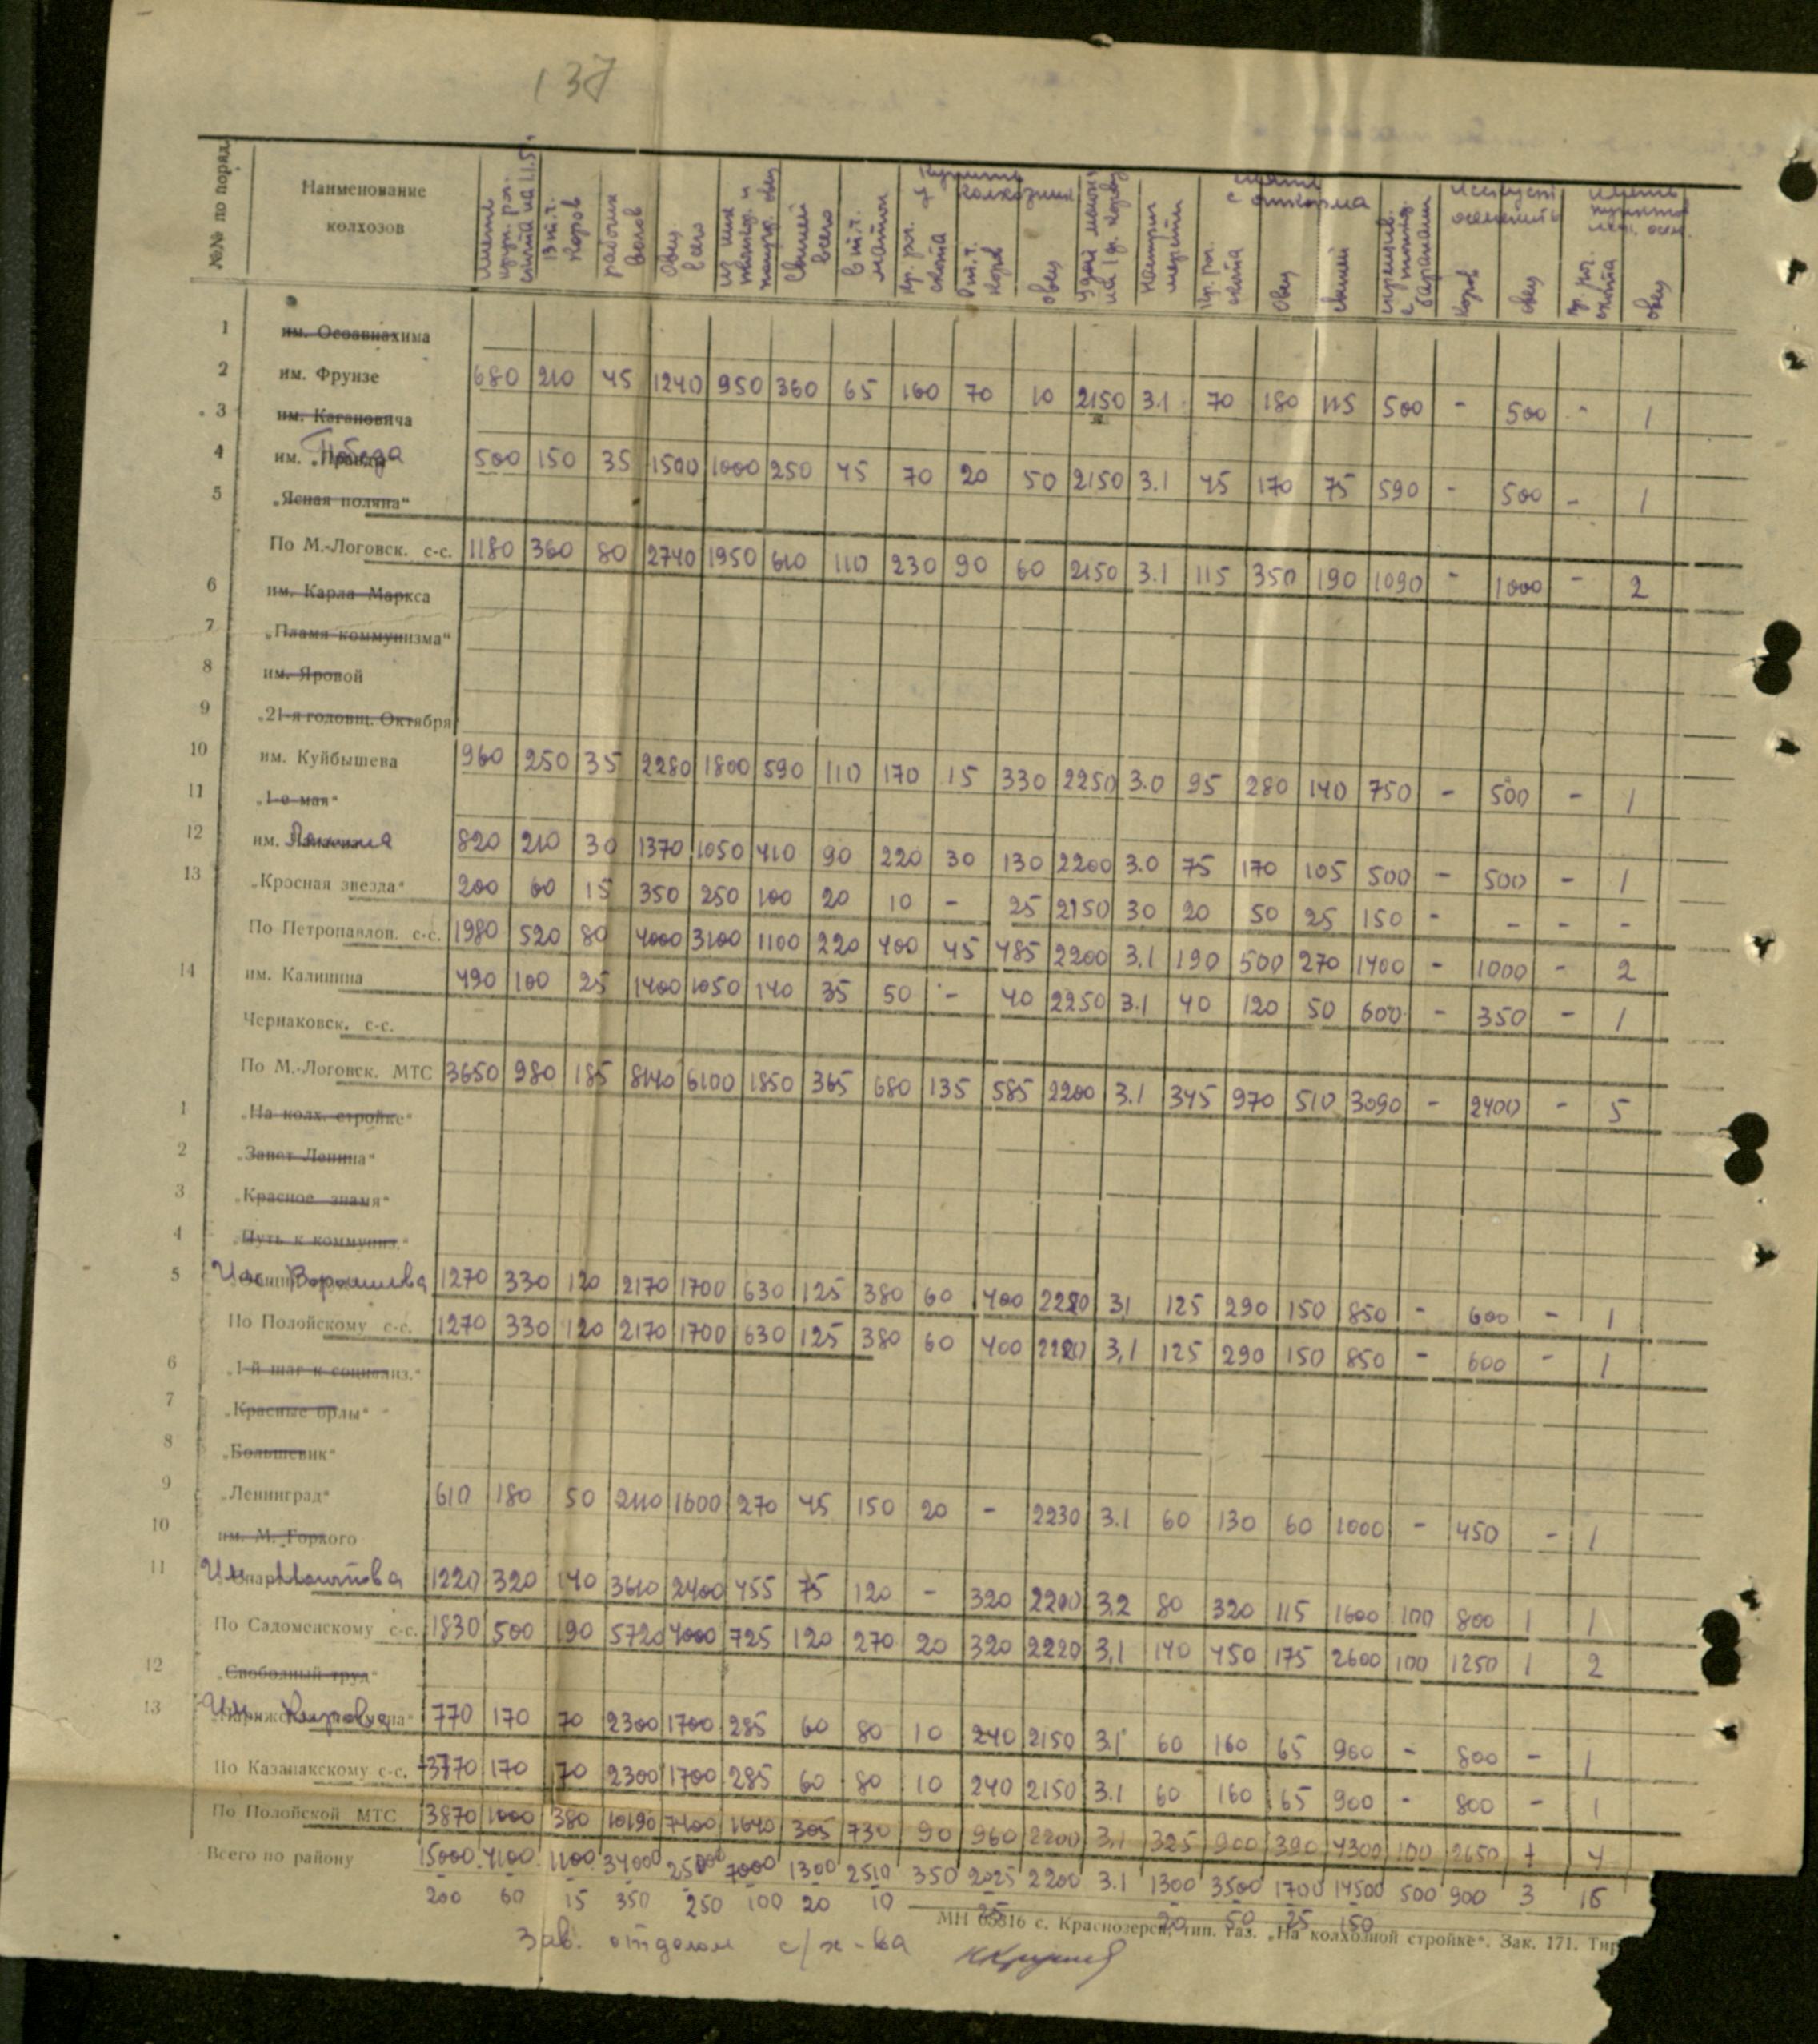 137
№№ по поряд.
Наименование колхозов
Иметь крупн. рог. скота на 1.I.5
в т.ч. коров
рабочих волов
Овец всего
из них тонкор. и полугр. овец
Свиней всего
в т.ч. маток
Купить у колхозник
кр. рог. скота
в т.ч. коров
овец
Удой молока на 1 ф. корову
настриг шерсти
Снять с откорма
кр. рог. скота
Овец
свиней
баранами
Искусст осеменить
коров
овец
Иметь пунктов иск. осем.
кр. рог. скота
овец
1 им. Осоавиахима
2 им. Фрунзе 680 210 45 1240 950 360 65 160 70 10 2150 3.1 70 180 115 500 - 500 - 1
3 им. Кагановича
4 им. „Правды“ Победа 500 150 35 1500 1000 250 45 70 20 50 2150 3.1 45 170 75 590 - 500 - 1
5 „Ясная поляна“
По М.-Логовск. с-с. 1180 360 80 2740 1950 610 110 230 90 60 2150 3.1 115 350 190 1090 - 1000 - 2
6 им. Карла Маркса
7 „Пламя коммунизма“
8 им. Яровой
9 „21-я годовщ. Октября
10 им. Куйбышева 960 250 35 2280 1800 590 110 170 15 330 2250 3.0 95 280 140 750 - 500 - 1
11 „1-е мая“
12 им. Ленина 820 210 30 1370 1050 410 90 220 30 130 2200 3.0 75 170 105 500 - 500 - 1
13 „Красная звезда“ 200 60 15 350 250 100 20 10 - 25 2150 30 20 50 25 150 - - - -
По Петропавлов. с-с. 1980 520 80 4000 3100 1100 220 400 45 485 2200 3.1 190 500 270 1400 - 1000 - 2
14 им. Калинина 490 100 25 1400 1050 140 35 50 - 40 2250 3.1 40 120 50 600 - 350 - 1
Чернаковск. с-с.
По М.-Логовск. МТС 3650 980 185 8140 6100 1850 365 680 135 585 2200 3.1 345 970 510 3090 - 2400 - 5
1 „На колх. стройке“
2 „Завет Ленина“
3 „Красное знамя“
4 „Путь к коммуниз.“
5 Им. Ворошилова 1270 330 120 2170 1700 630 125 380 60 400 2220 3,1 125 290 150 850 - 600 - 1
По Полойскому с-с. 1270 330 120 2170 1700 630 125 380 60 400 2220 3,1 125 290 150 850 - 600 - 1
6 „1-й шаг к социализ.“
7 „Красные орлы“
8 „Большевик“
9 „Ленинград“ 610 180 50 2110 1600 270 45 150 20 - 2230 3.1 60 130 60 1000 - 450 - 1
10 им. М. Горкого
11 Им. Молотова 1220 320 140 3610 2400 455 75 120 - 320 2200 3.2 80 320 115 1600 100 800 1 1
По Садоменскому с-с. 1830 500 190 5720 4000 725 120 270 20 320 2220 3,1 140 450 175 2600 100 1250 1 2
12 „Свободный труд“
13 Им. Кирова 770 170 70 2300 1700 285 60 80 10 240 2150 3.1 60 160 65 900 - 800 - 1
По Казанакскому с-с. 770 170 70 2300 1700 285 60 80 10 240 2150 3.1 60 160 65 900 - 800 - 1
По Полойской МТС 3870 1000 380 10190 7400 1640 305 730 90 960 2200 3,1 325 900 390 4300 100 2650 1 4
Всего по району 15000 4100 1100 34000 25000 7000 1300 2510 350 2025 2200 3.1 1300 3500 1700 14500 500 900 3 16
200 60 15 350 250 100 20 10 25 20 50 25 150
МН 65816 с. Краснозерск, тип. газ. „На колхозной стройке“. Зак. 171. Тир
Зав. отделом с/х-ва